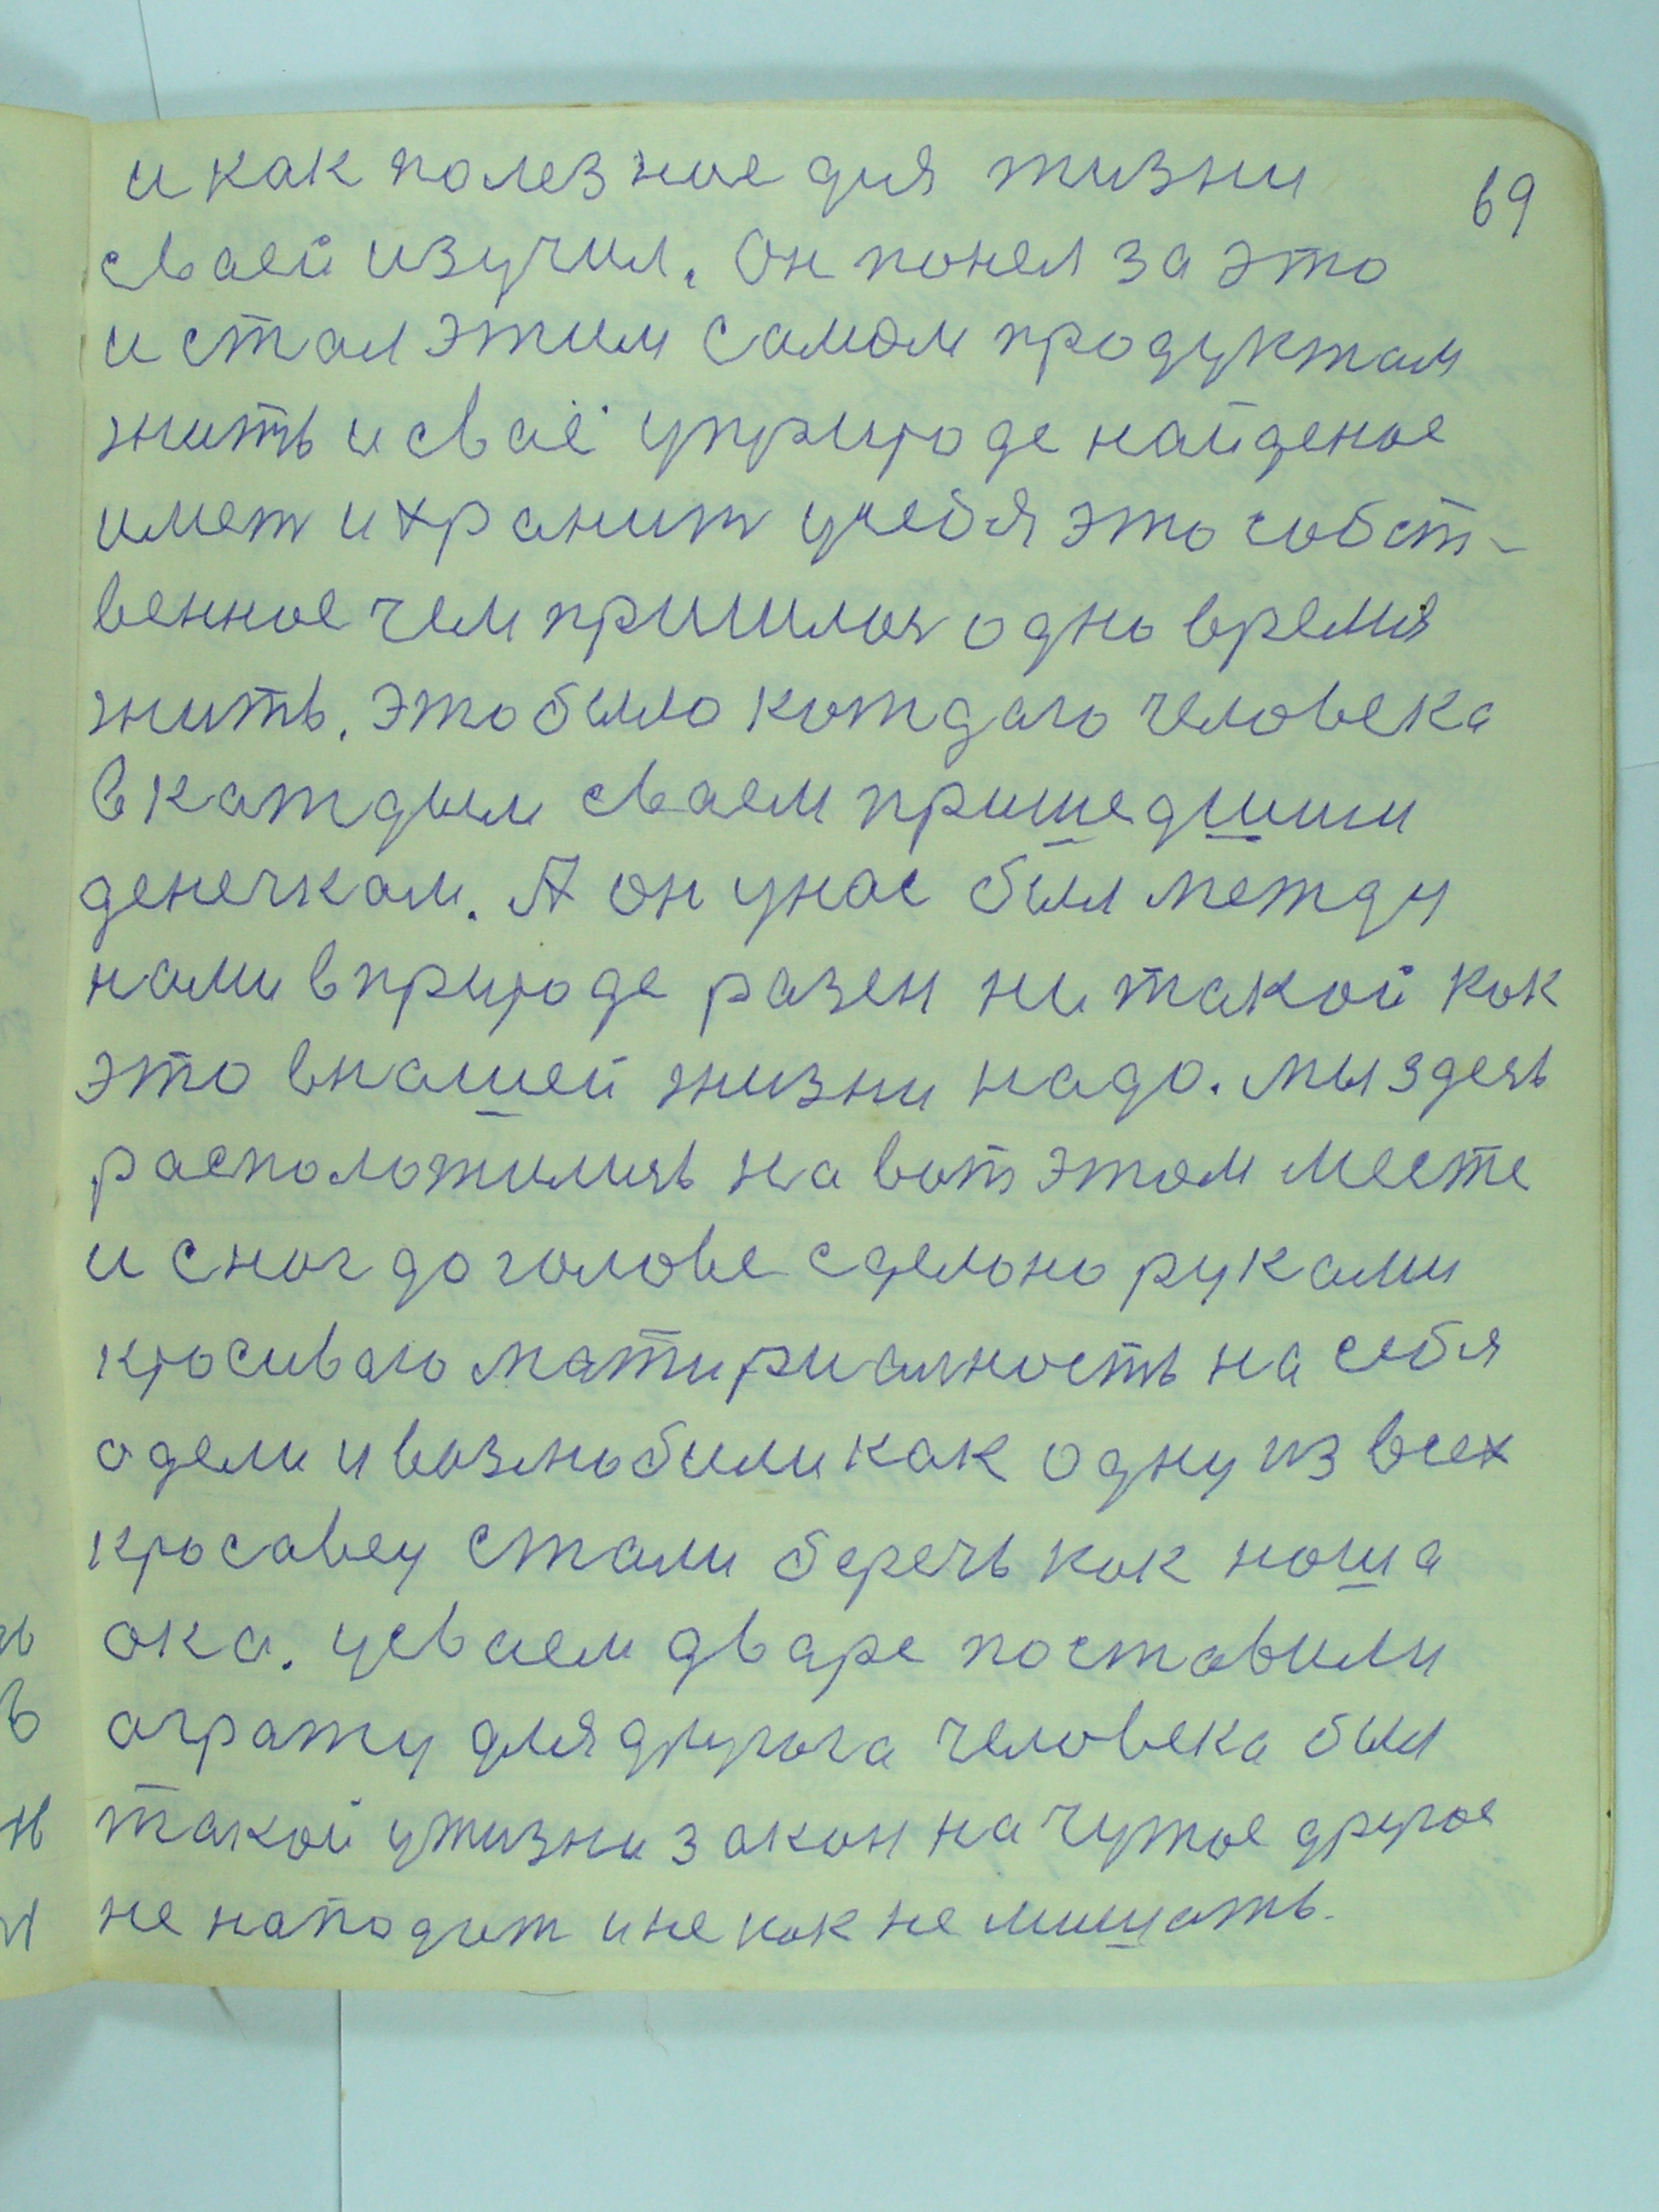 69
и как полезное для жизни
сваей изучил. Он понел за это
и стал этим самом продуктам
жить и сваё уприроде найденое
имет и хранит усебя это собст-
венное чем пришлося одно время
жить. это было котдаго человека
в катдым сваем пришедшим
денечкам. А он унас был между
нами вприроде разен ни такой как
это внашей жизни надо. мы здесь
расположились на вот этом месте
и сног доголове сдельно руками
красиваю матириалность на себя
одели и возлюбили как одну из всех
красавец стали беречь как наша
ока. усваем дваре поставили
агражу для друрога человека был
такой ужизни закон на чужое другое
не наподит и не как не мишать.